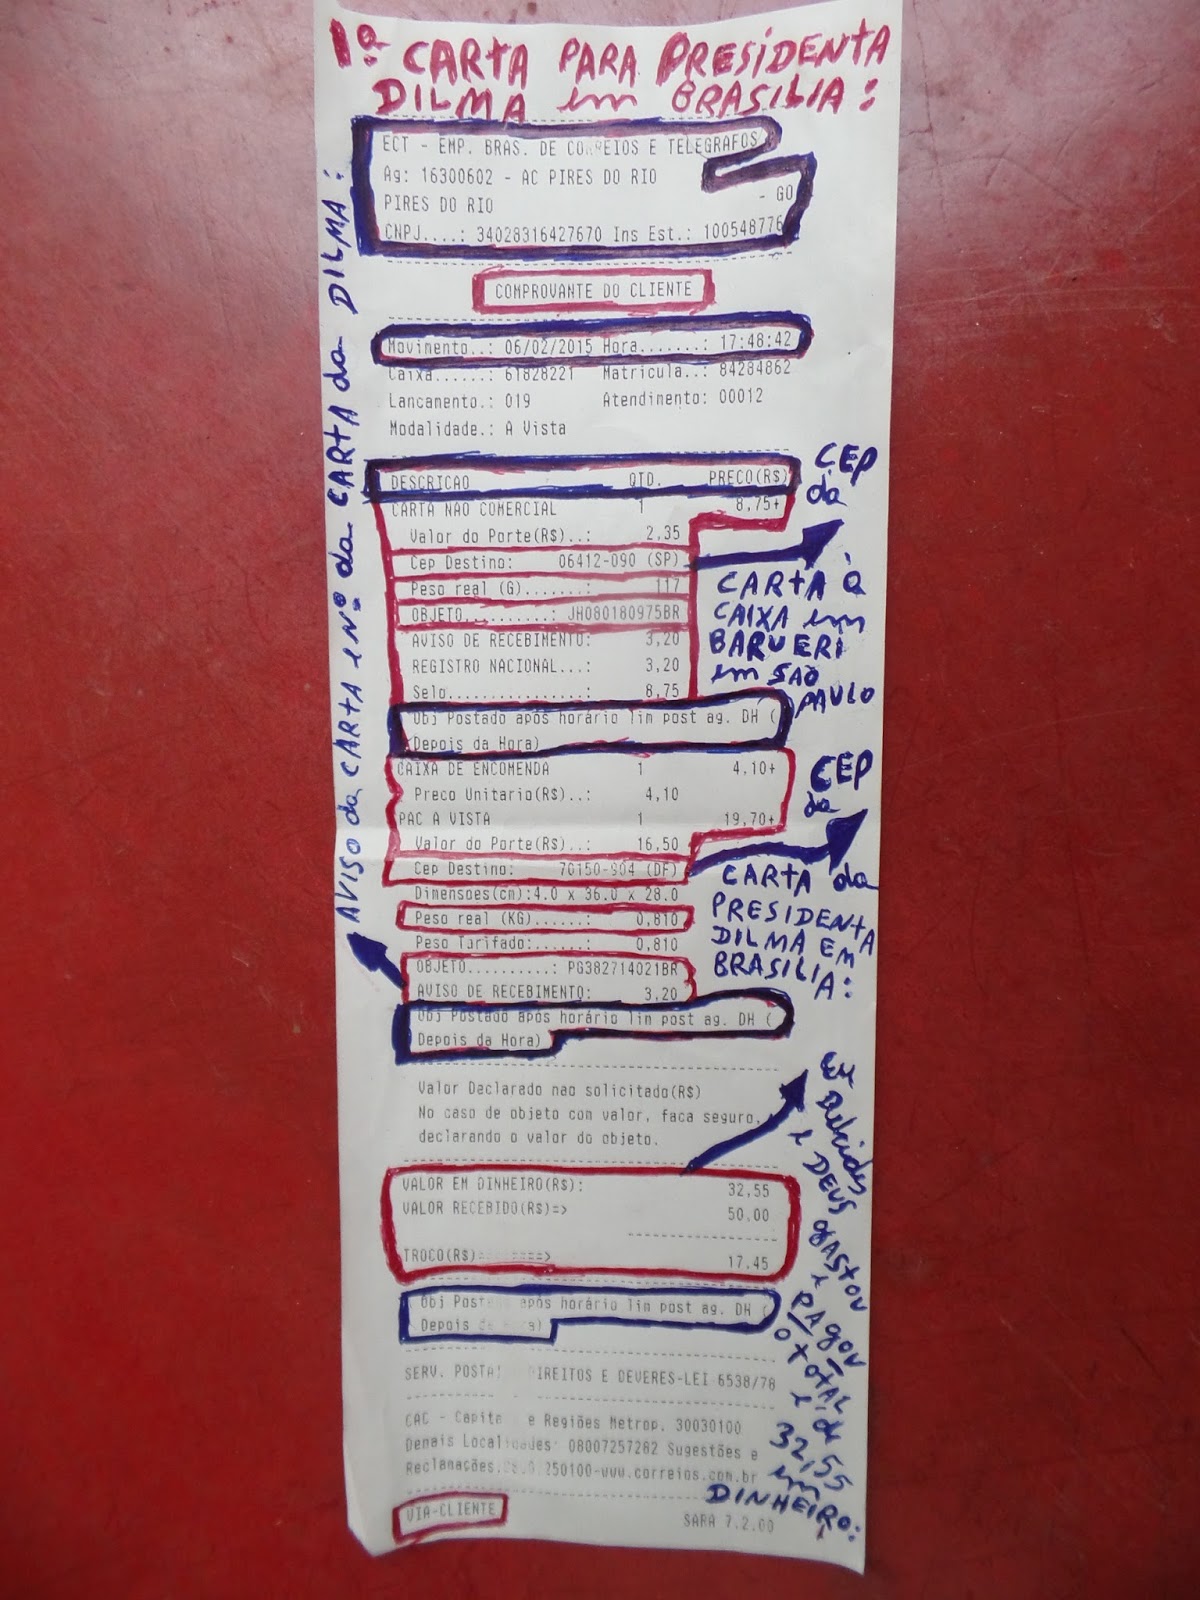 1ª CARTA PARA PRESIDENTA
DILMA em BRASILIA:
ECT - EMP. BRAS. DE CORREIOS E TELEGRAFOS
Ag: 16300602 - AC PIRES DO RIO
PIRES DO RIO - GO
CNPJ....: 34028316427670 Ins Est.: 100548776
COMPROVANTE DO CLIENTE
Movimento..: 06/02/2015 Hora.......: 17:48:42
Caixa......: 61828221 Matricula..: 84284862
Lancamento.: 019 Atendimento: 00012
Modalidade.: A Vista
DESCRICAO QTD. PRECO(R$)
CARTA NAO COMERCIAL 1 8,75+
Valor do Porte(R$)..: 2,35
Cep Destino: 06412-090 (SP)
Peso real (G).......: 117
OBJETO..........: JH080180975BR
AVISO DE RECEBIMENTO: 3,20
REGISTRO NACIONAL...: 3,20
Selo................: 8,75
Obj Postado após horário lim post ag. DH (
Depois da Hora)
CAIXA DE ENCOMENDA 1 4,10+
Preco Unitario(R$)..: 4,10
PAC A VISTA 1 19,70+
Valor do Porte(R$)..: 16,50
Cep Destino: 70150-904 (DF)
Dimensoes(cm):4.0 x 36.0 x 28.0
Peso real (KG)......: 0,810
Peso Tarifado:......: 0,810
OBJETO..........: PG382714021BR
AVISO DE RECEBIMENTO: 3,20
Obj Postado após horário lim post ag. DH (
Depois da Hora)
Valor Declarado nao solicitado(R$)
No caso de objeto com valor, faca seguro,
declarando o valor do objeto.
VALOR EM DINHEIRO(R$): 32,55
VALOR RECEBIDO(R$)=> 50,00
TROCO(R$)=========> 17,45
Obj Post após horário lim post ag. DH (
Depois
SERV. POSTA DIREITOS E DEVERES-LEI 6538/78
CAC - Capita e Regiões Metrop. 30030100
Demais Localidades: 08007257282 Sugestões e
Reclamações. 250100-www.correios.com.br
VIA-CLIENTE SARA 7.2.00
AVISO da CARTA e Nº da CARTA da DILMA:
CEP
da
CARTA à
CAIXA em
BARUERI
em SAO
PAULO
CEP
da
CARTA da
PRESIDENTA
DILMA EM
BRASILIA:
Eu
e DEUS gastou
e PAgou
o total é de
32,55
em
DINHEIRO: